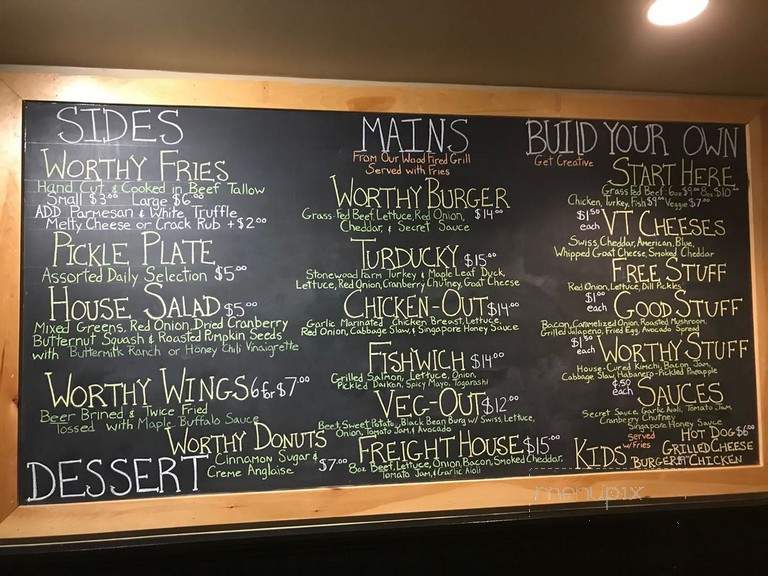 SIDES
WORTHY FRIES
Hand Cut & Cooked in Beef Tallow
Small $3.00 Large $6.00
ADD Parmesan & White Truffle
Melty Cheese or Crack Rub +$2.00
PICKLE PLATE
Assorted Daily Selection $5.00
HOUSE SALAD $5.00
Mixed Greens, Red Onion, Dried Cranberry
Butternut Squash & Roasted Pumpkin Seeds
with Buttermilk Ranch or Honey Chili Vinaigrette
WORTHY WINGS 6 for $7.00
Beer Brined & Twice Fried
Tossed with Maple Buffalo Sauce
WORTHY DONUTS
Cinnamon Sugar &
Creme Anglaise $7.00
DESSERT
MAINS
From Our Wood Fired Grill
Served with Fries
WORTHY BURGER
Grass-Fed Beef, Lettuce, Red Onion, $14.00
Cheddar, & Secret Sauce
TURDUCKY $15.00
Stonewood Farm Turkey & Maple Leaf Duck,
Lettuce, Red Onion, Cranberry Chutney, Goat Cheese
CHICKEN-OUT $14.00
Garlic Marinated Chicken Breast, Lettuce,
Red Onion, Cabbage Slaw, & Singapore Honey Sauce
FISHWICH $14.00
Grilled Salmon, Lettuce, Onion,
Pickled Daikon, Spicy Mayo, Togarashi
VEG-OUT $12.00
Beet, Sweet Potato, Black Bean Burg w/ Swiss, Lettuce,
Onion, Tomato Jam, & Avocado
FREIGHT HOUSE $15.00
8oz Beef, Lettuce, Onion, Bacon, Smoked Cheddar,
Tomato Jam, & Garlic Aioli
BUILD YOUR OWN
Get Creative
START HERE
Grassfed Beef 6oz $9.00 8oz $10.00
Chicken, Turkey, Fish $9.00 Veggie $7.00
$1.50 each VT CHEESES
Swiss, Cheddar, American, Blue,
Whipped Goat Cheese, Smoked Cheddar
FREE STUFF
Red Onion, Lettuce, Dill Pickles
$1.00 each GOOD STUFF
Bacon, Caramelized Onion, Roasted Mushroom,
Grilled Jalapeno, Fried Egg, Avocado Spread
$1.50 each WORTHY STUFF
House-Cured Kimchi, Bacon Jam,
Cabbage Slaw, Habanero-Pickled Pineapple
$.50 each SAUCES
Secret Sauce, Garlic Aioli, Tomato Jam,
Cranberry Chutney
Singapore Honey Sauce
KIDS
served w/Fries
HOT DOG $6.00
GRILLED CHEESE
BURGER CHICKEN
menupix